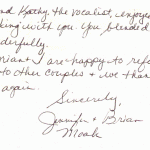 nd Kathy, the vocalist, enjoyed
king with you. You blended
derfully.
rian & I are happy to ref
to other couples & we than
again.
Sincerely,
Jennifer & Brian
Moale